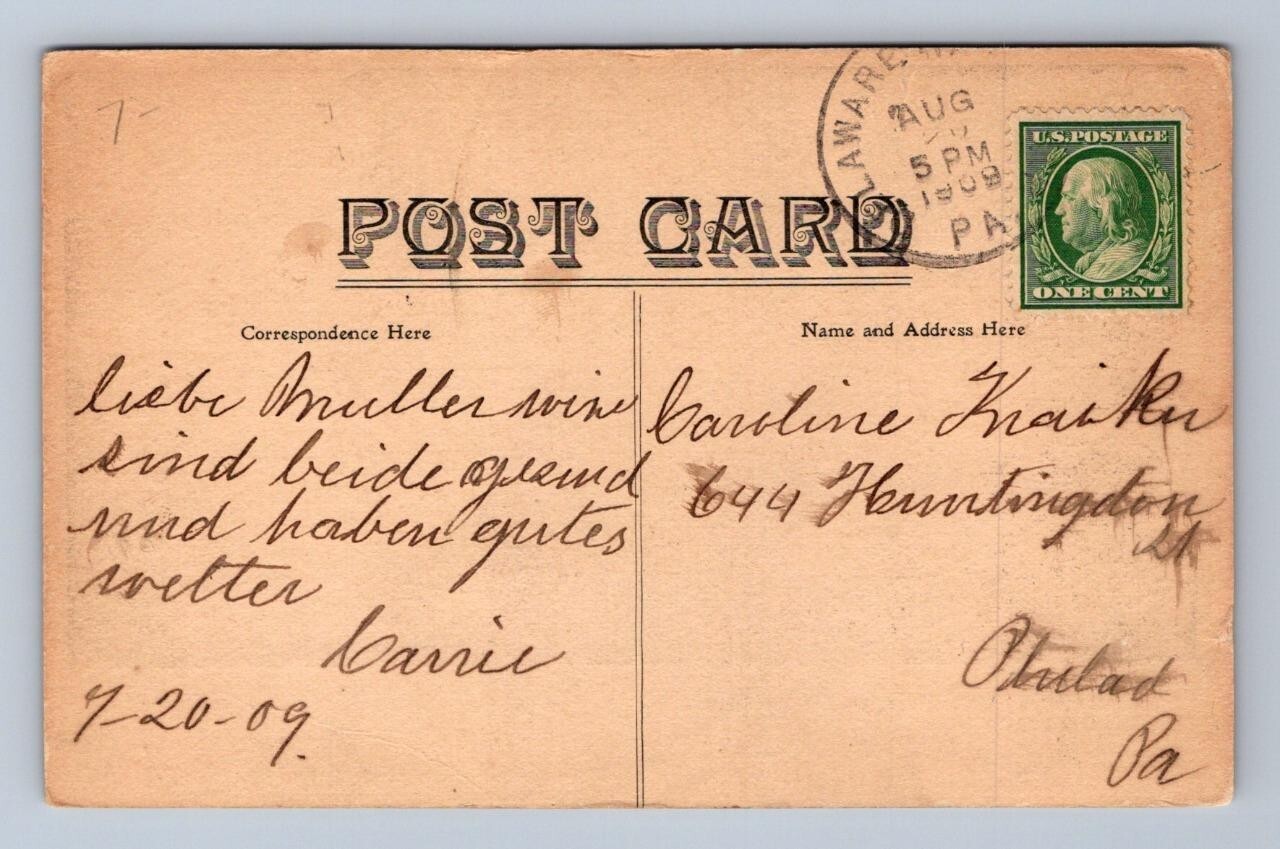 7-
DELAWARE
AUG
20
5 PM
1909
PA
U.S.POSTAGE
ONE CENT
POST CARD
Correspondence Here
liebe Muller wir
sind beide gesund
und haben gutes
wetter
Carrie
7-20-09.
Name and Address Here
Caroline
644 Huntingdon
St
Philad
Pa